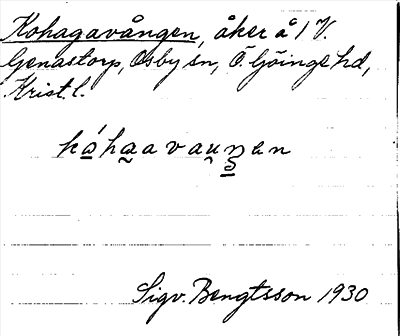 Kohagavången, åker å 1 V.
Genastorp, Osby sn, Ö. Göinge hd,
Krist. l.
kóhaavauŋen
Sigv. Bengtsson 1930